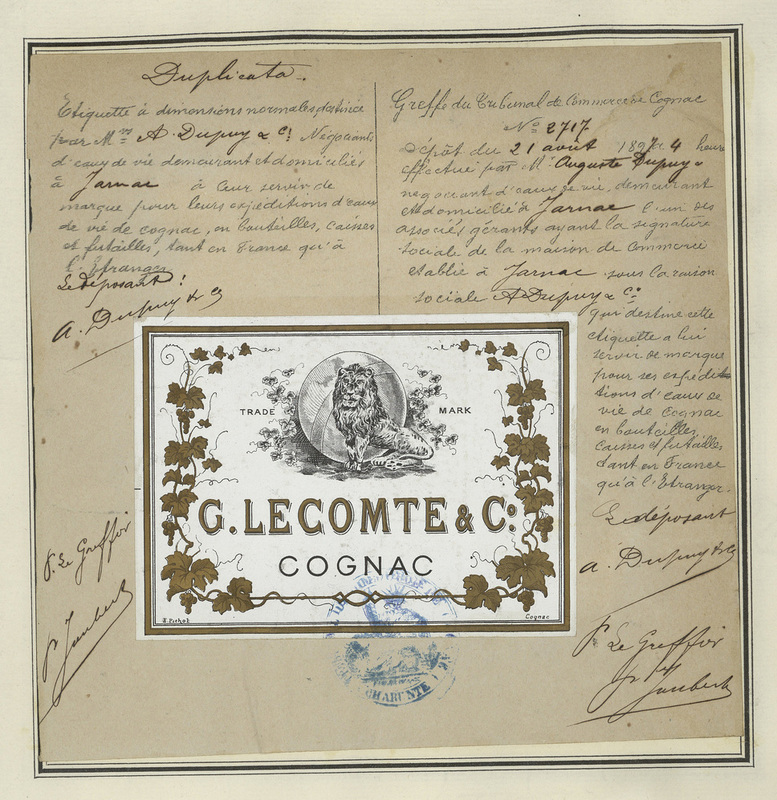 Duplicata.
Etiquette à dimensions normales, destinée
pour Mrs A. Dupuy & Cie Négociants
d'eaux de vie demeurant et domiciliés
à Jarnac à leur servir de
marque pour leurs expéditions d'eaux
de vie de cognac, en bouteilles, caisses
et futailles, tant en France qu'à
l'Étranger
Le déposant :
A. Dupuy & Co
Greffe du Tribunal de Commerce de Cognac
No 2717
Dépôt du 21 août à 4 heure
effectué par Mr Auguste Dupuy
négociant d'eaux de vie, demeurant
et domicilié à Jarnac l'un des
associés gérants ayant la signature
sociale de la maison de Commerce
établie à Jarnac sous la raison
sociale A Dupuy & Co
qui destine cette
etiquette a lui
servir de marque
pour ses expédi-
tions d'eaux de
vie de Cognac
en bouteilles,
caisses et futailles
tant en France
qu'à l'Etranger.
Le déposant
A. Dupuy & Co
P. Le Greffier
Jaubert
TRADE MARK
G. LECOMTE & Co.
COGNAC
Cognac
CHARENTE
P. Le Greffier
Jaubert